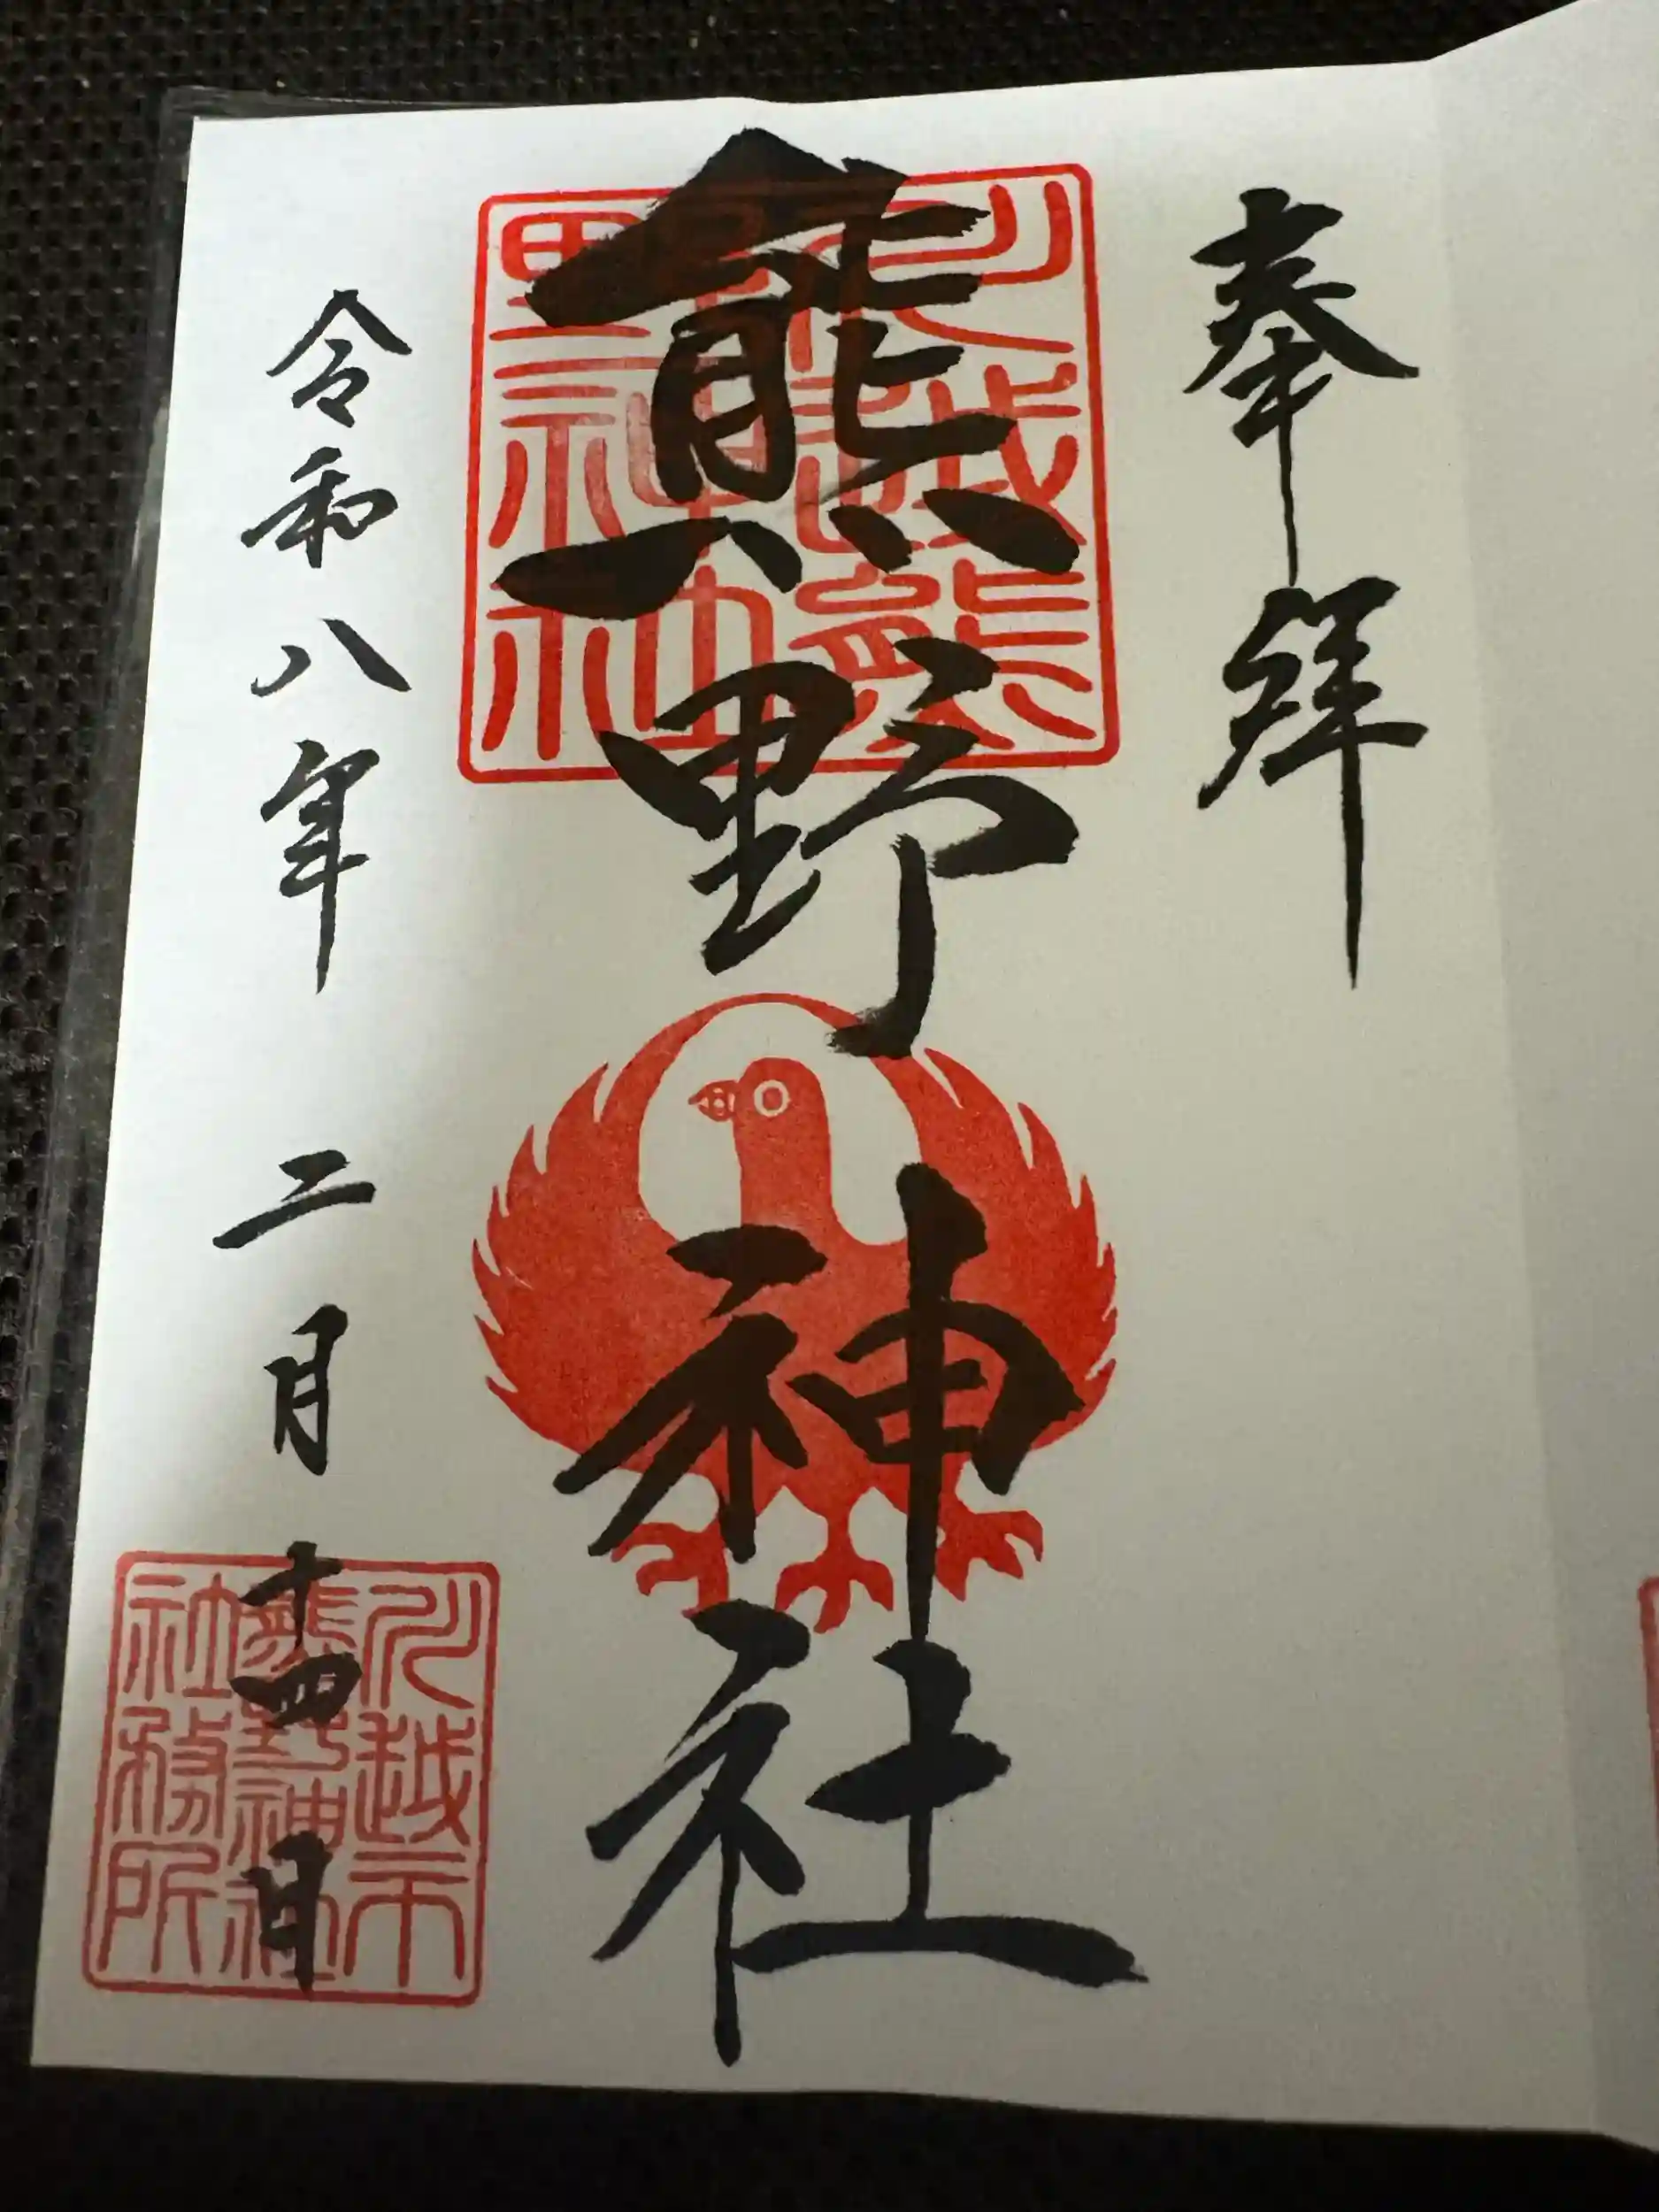 奉拝
熊野神社
川越熊
野神社
令和八年 二月十四日
川越市
熊野神社
社務所